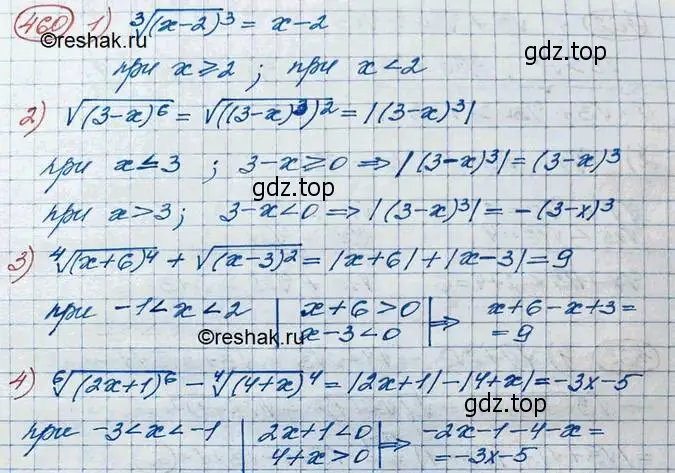 460 1) ∛(x-2)³ = x-2
©reshak.ru
gdz.top
при x ≥ 2 ; при x < 2
2) √(3-x)⁶ = √((3-x)³)² = |(3-x)³|
при x ≤ 3 ; 3-x ≥ 0 ⇒ |(3-x)³| = (3-x)³
gdz.top
при x > 3; 3-x < 0 ⇒ |(3-x)³| = -(3-x)³
3) ⁴√(x+6)⁴ + √(x-3)² = |x+6| + |x-3| = 9
при -1 < x < 2 | x+6 > 0 | ⇒ x+6-x+3 =
©reshak.ru
x-3 < 0 = 9
4) ⁶√(2x+1)⁶ - ⁴√(4+x)⁴ = |2x+1| - |4+x| = -3x-5
gdz.top
при -3 < x < -1 | 2x+1 < 0 | ⇒ -2x-1-4-x =
4+x > 0 = -3x-5